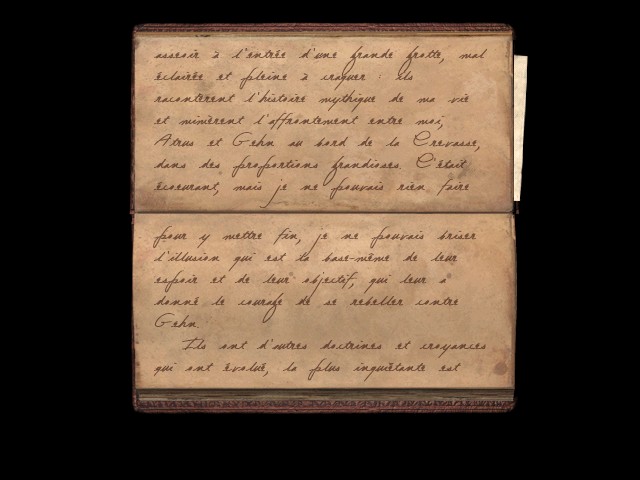 asseoir à l'entrée d'une grande grotte, mal
éclairée et pleine à craquer : ils
racontèrent l'histoire mythique de ma vie
et mimèrent l'affrontement entre moi,
Atrus et Gehn au bord de la Crevasse,
dans des proportions grandioses. C'était
écoeurant, mais je ne pouvais rien faire
pour y mettre fin, je ne pouvais briser
l'illusion qui est la base-même de leur
espoir et de leur objectif, qui leur a
donné le courage de se rebeller contre
Gehn.
Ils ont d'autres doctrines et croyances
qui ont évolué, la plus inquiétante est